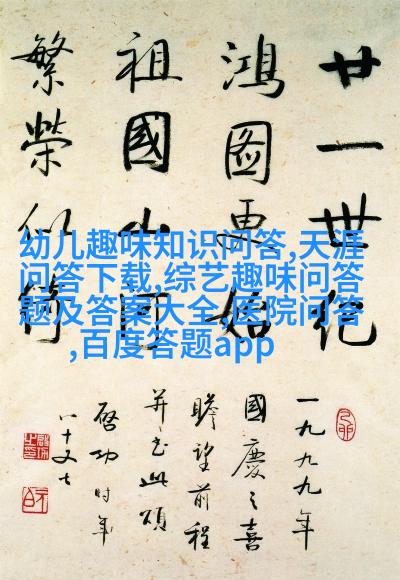 廿一世纪
鸿图更始
祖國山
繁榮似绮
一九九九年
國慶之喜
瞻望前程
并书此颂
启功时年
八十又七
幼儿趣味知识问答,天涯
问答下载,综艺趣味问答
题及答案大全,医院问答
,百度答题app